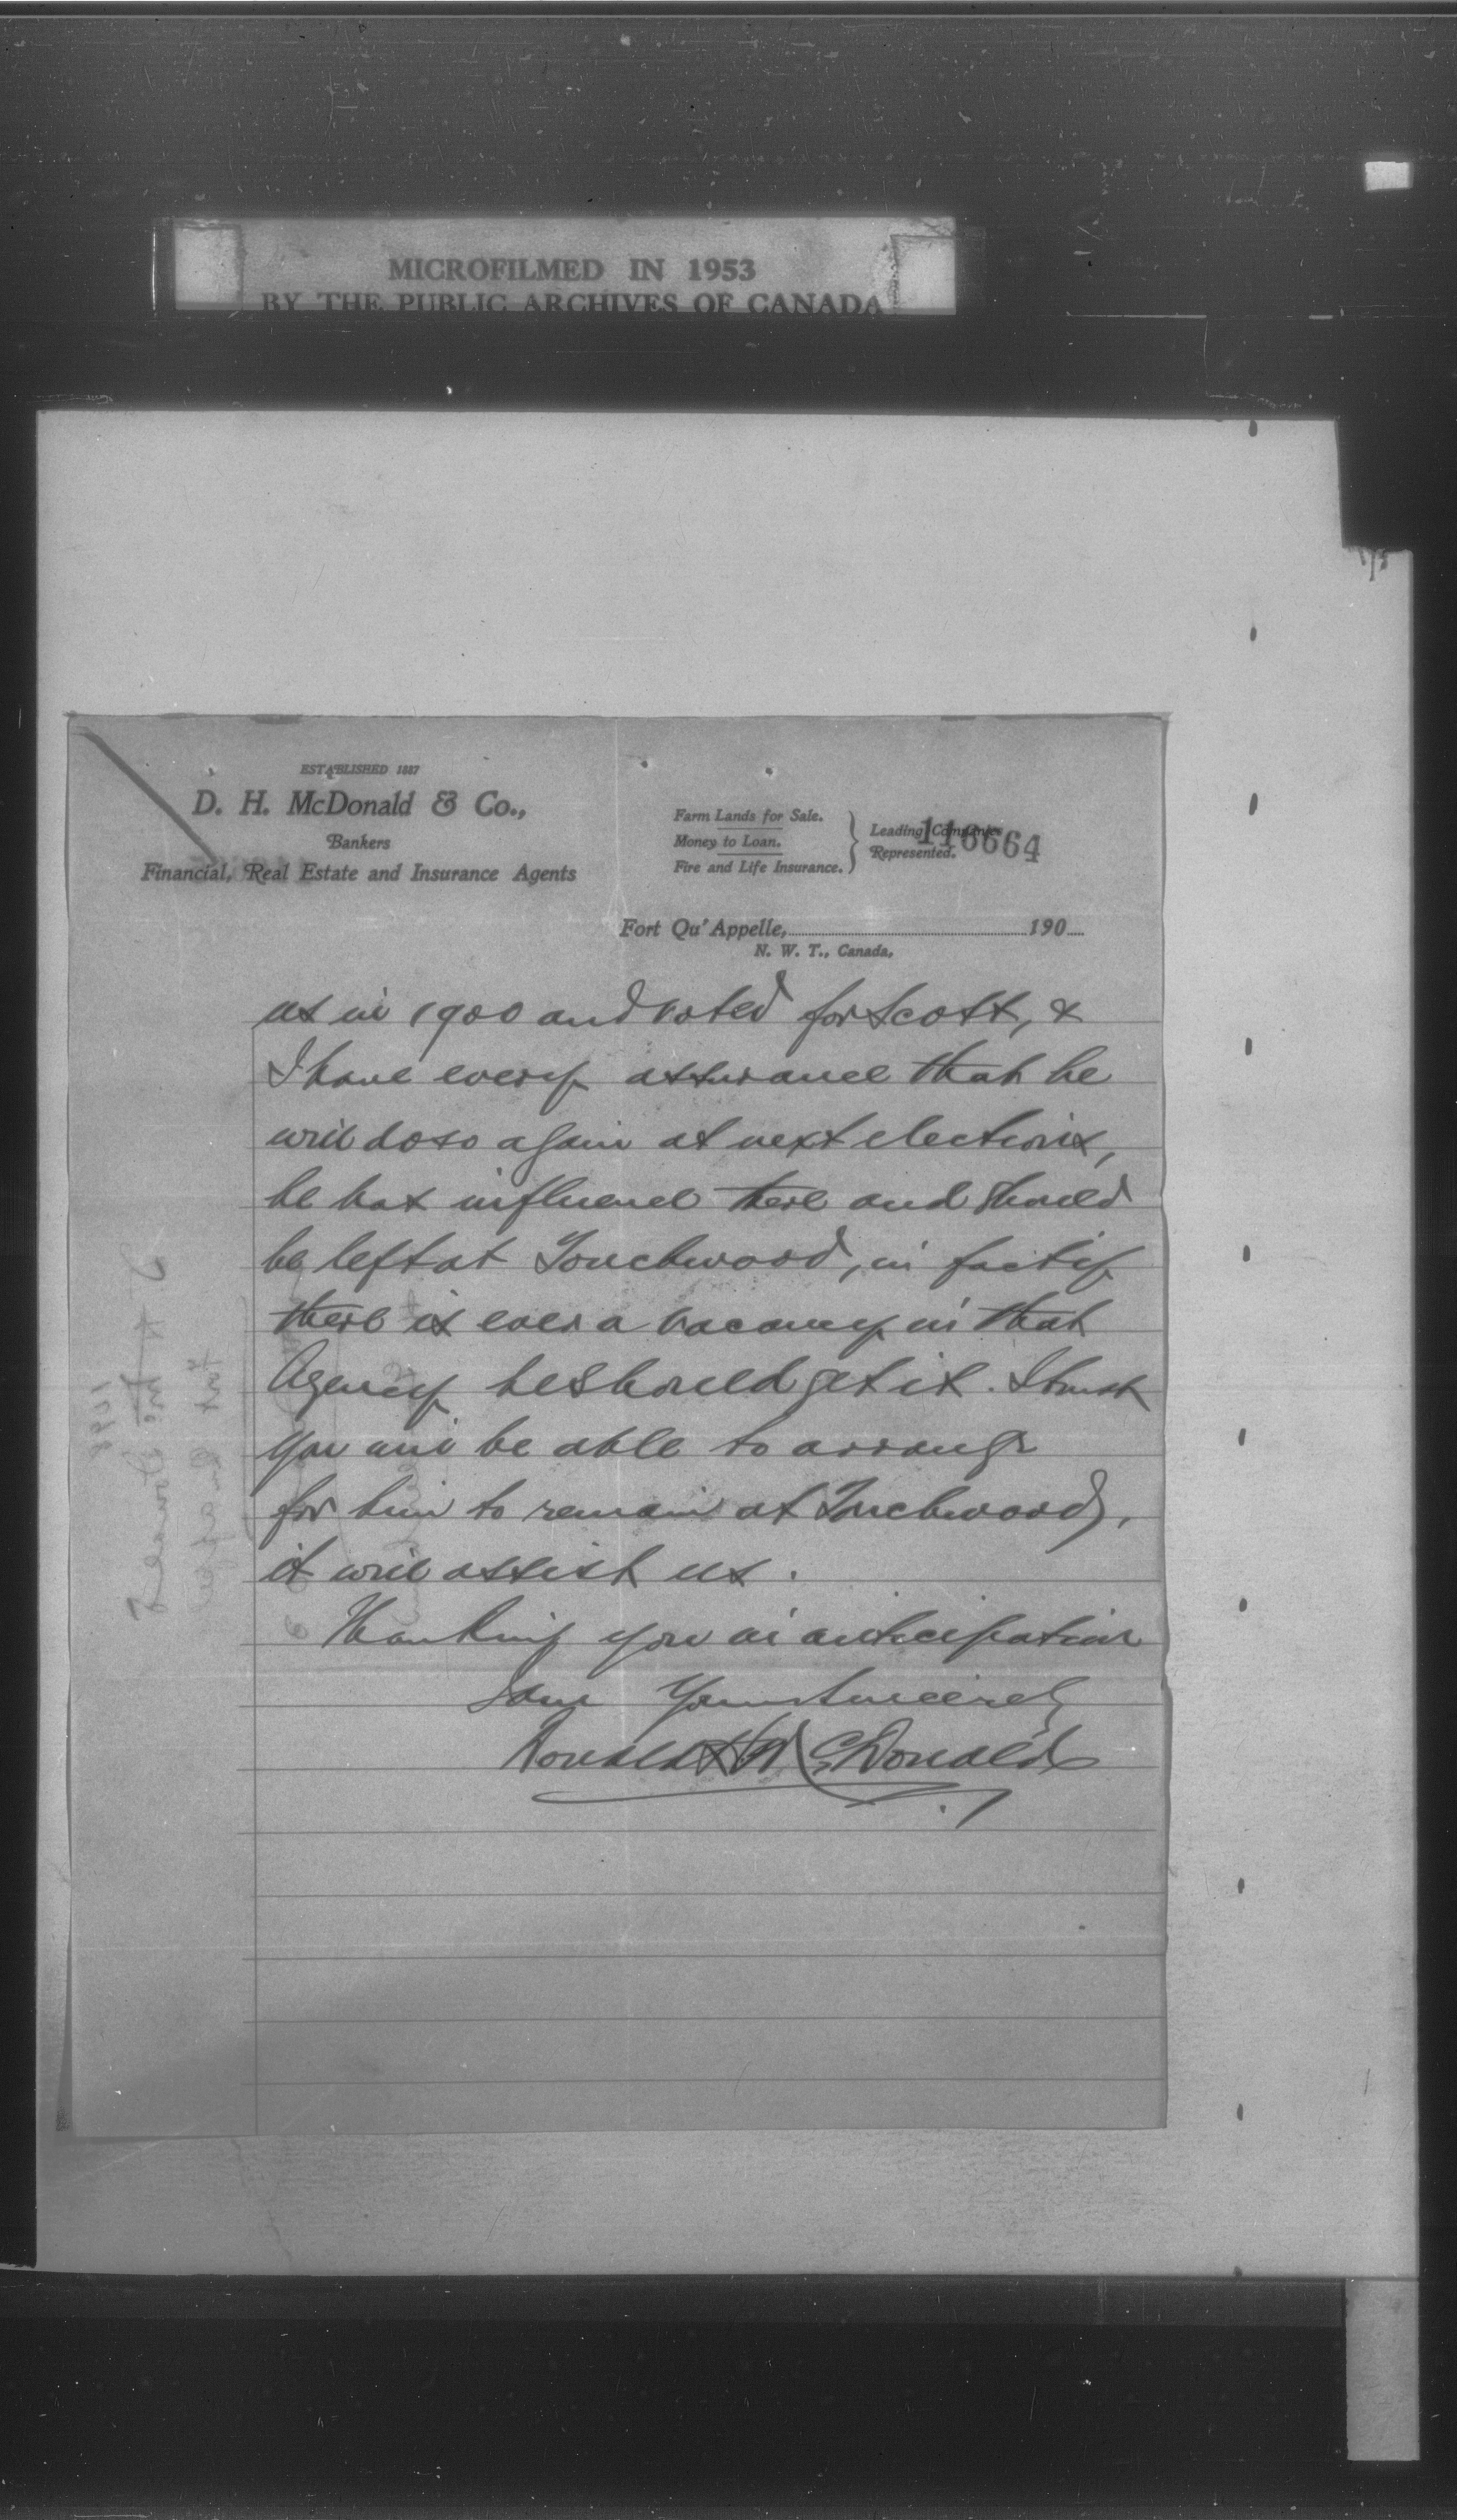 MICROFILMED IN 1953
BY THE PUBLIC ARCHIVES OF CANADA
ESTABLISHED 1887
D. H. McDonald & Co.,
Bankers
Financial, Real Estate and Insurance Agents
Farm Lands for Sale.
Money to Loan.
Fire and Life Insurance.
Leading Companies
Represented.
116664
Fort Qu'Appelle, 190
N. W. T., Canada,
us in 1900 and voted for Scott, &
I have every assurance that he
will do so again at next elections,
he has influence there and should
be left at Touchwood, in fact if
there is ever a vacancy in that
Agency he should get it. I trust
you will be able to arrange
for him to remain at Touchwood,
it will assist us.
Thanking you in anticipation
I am Yours Sincerely
Donald H McDonald